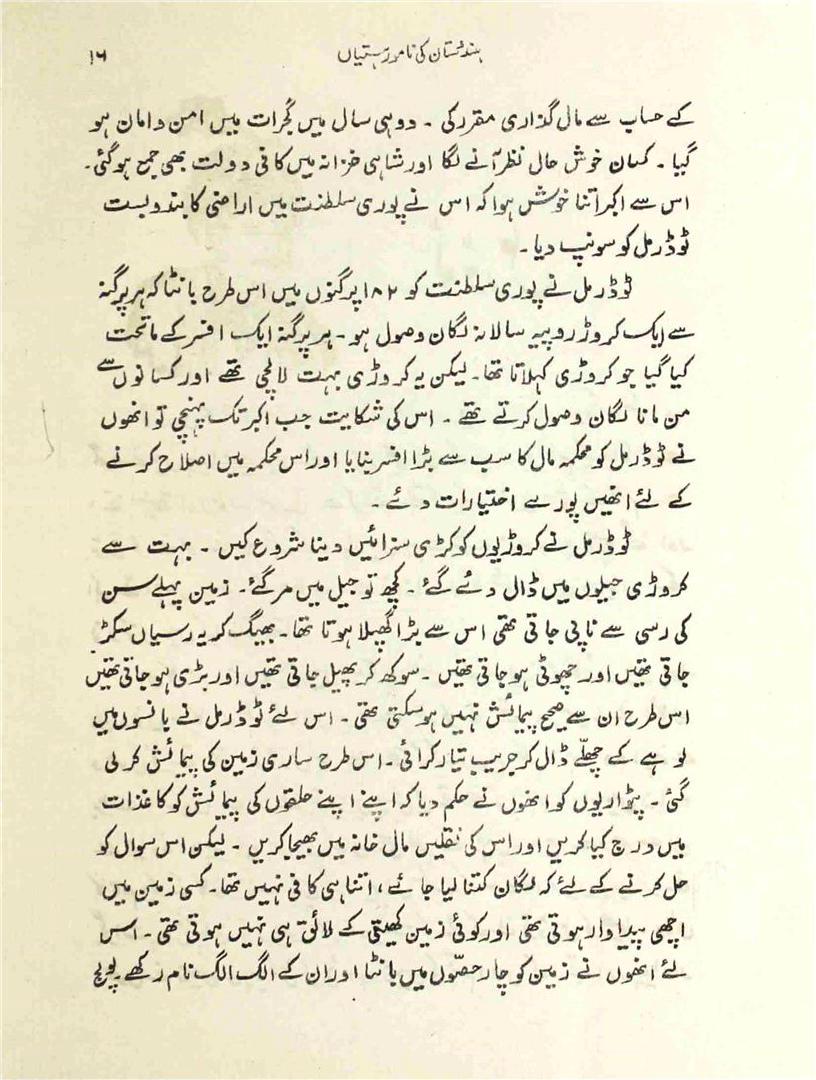 ہندستان کی نامور ہستیاں ۱۶
کے حساب سے مال گذاری مقرر کی ۔ دو ہی سال میں گجرات میں امن و امان ہو
گیا ۔ کسان خوش حال نظر آنے لگا اور شاہی خزانہ میں کافی دولت بھی جمع ہوگئی۔
اس سے اکبر اتنا خوش ہوا کہ اس نے پوری سلطنت میں اراضی کا بندوبست
ٹوڈرمل کو سونپ دیا ۔
ٹوڈرمل نے پوری سلطنت کو ۱۸۲ پرگنوں میں اس طرح بانٹا کہ ہر پرگنہ
سے ایک کروڑ روپیہ سالانہ لگان وصول ہو ۔ ہر پرگنہ ایک افسر کے ماتحت
کیا گیا جو کروڑی کہلاتا تھا۔ لیکن یہ کروڑی بہت لالچی تھے اور کسانوں سے
من مانا لگان وصول کرتے تھے ۔ اس کی شکایت جب اکبر تک پہنچی تو انھوں
نے ٹوڈرمل کو محکمہ مال کا سب سے بڑا افسر بنایا اور اس محکمہ میں اصلاح کرنے
کے لئے انھیں پورے اختیارات دئے ۔
ٹوڈرمل نے کروڑیوں کو کڑی سزائیں دینا شروع کیں ۔ بہت سے
کروڑی جیلوں میں ڈال دئے گئے ۔ کچھ تو جیل میں مر گئے ۔ زمین پہلے سن
کی رسی سے ناپی جاتی تھی اس سے بڑا گھپلا ہوتا تھا۔ بھیگ کر یہ رسیاں سکڑ
جاتی تھیں اور چھوٹی ہو جاتی تھیں ۔ سوکھ کر پھیل جاتی تھیں اور بڑی ہو جاتی تھیں
اس طرح ان سے صحیح پیمائش نہیں ہو سکتی تھی ۔ اس لئے ٹوڈرمل نے بانسوں میں
لوہے کے چھلّے ڈال کر جریب تیار کرائی ۔ اس طرح ساری زمین کی پیمائش کر لی
گئی ۔ پٹواریوں کو انھوں نے حکم دیا کہ اپنے اپنے حلقوں کی پیمائش کو کاغذات
میں درج کیا کریں اور اس کی نقلیں مال خانہ میں بھیجا کریں ۔ لیکن اس سوال کو
حل کرنے کے لئے کہ لگان کتنا لیا جائے ، اتنا ہی کافی نہیں تھا۔ کسی زمین میں
اچھی پیداوار ہوتی تھی اور کوئی زمین کھیتی کے لائق ہی نہیں ہوتی تھی ۔ اس
لئے انھوں نے زمین کو چار حصّوں میں بانٹا اور ان کے الگ الگ نام رکھے ۔ پولج